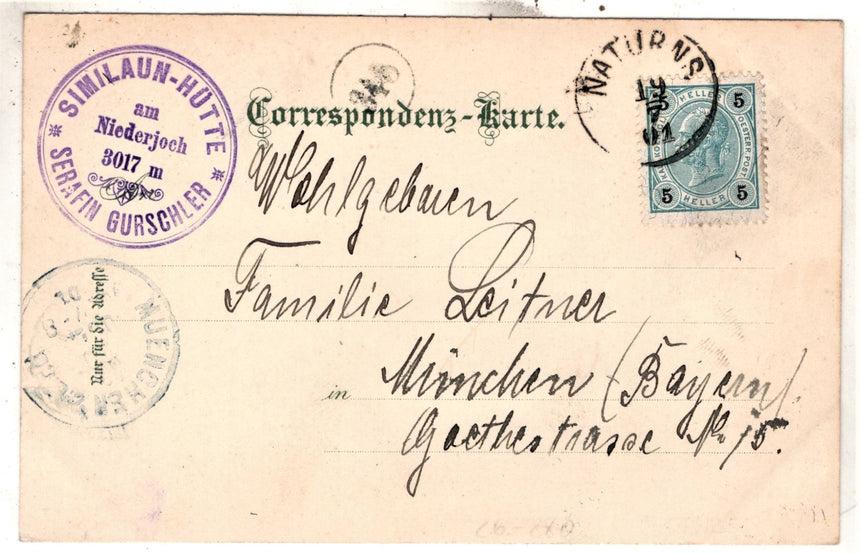 SIMILAUN-HÜTTE
am
Niederjoch
3017 m
SERAFIN GURSCHLER
Correspondenz-Karte.
NATURNS
19
01
5 HELLER 5
OESTERR. POST
5 HELLER 5
Wohlgeboren
Familie Leitner
in München (Bayern)
Goethestrasse No 15.
Nur für die Adresse
MUENCHEN